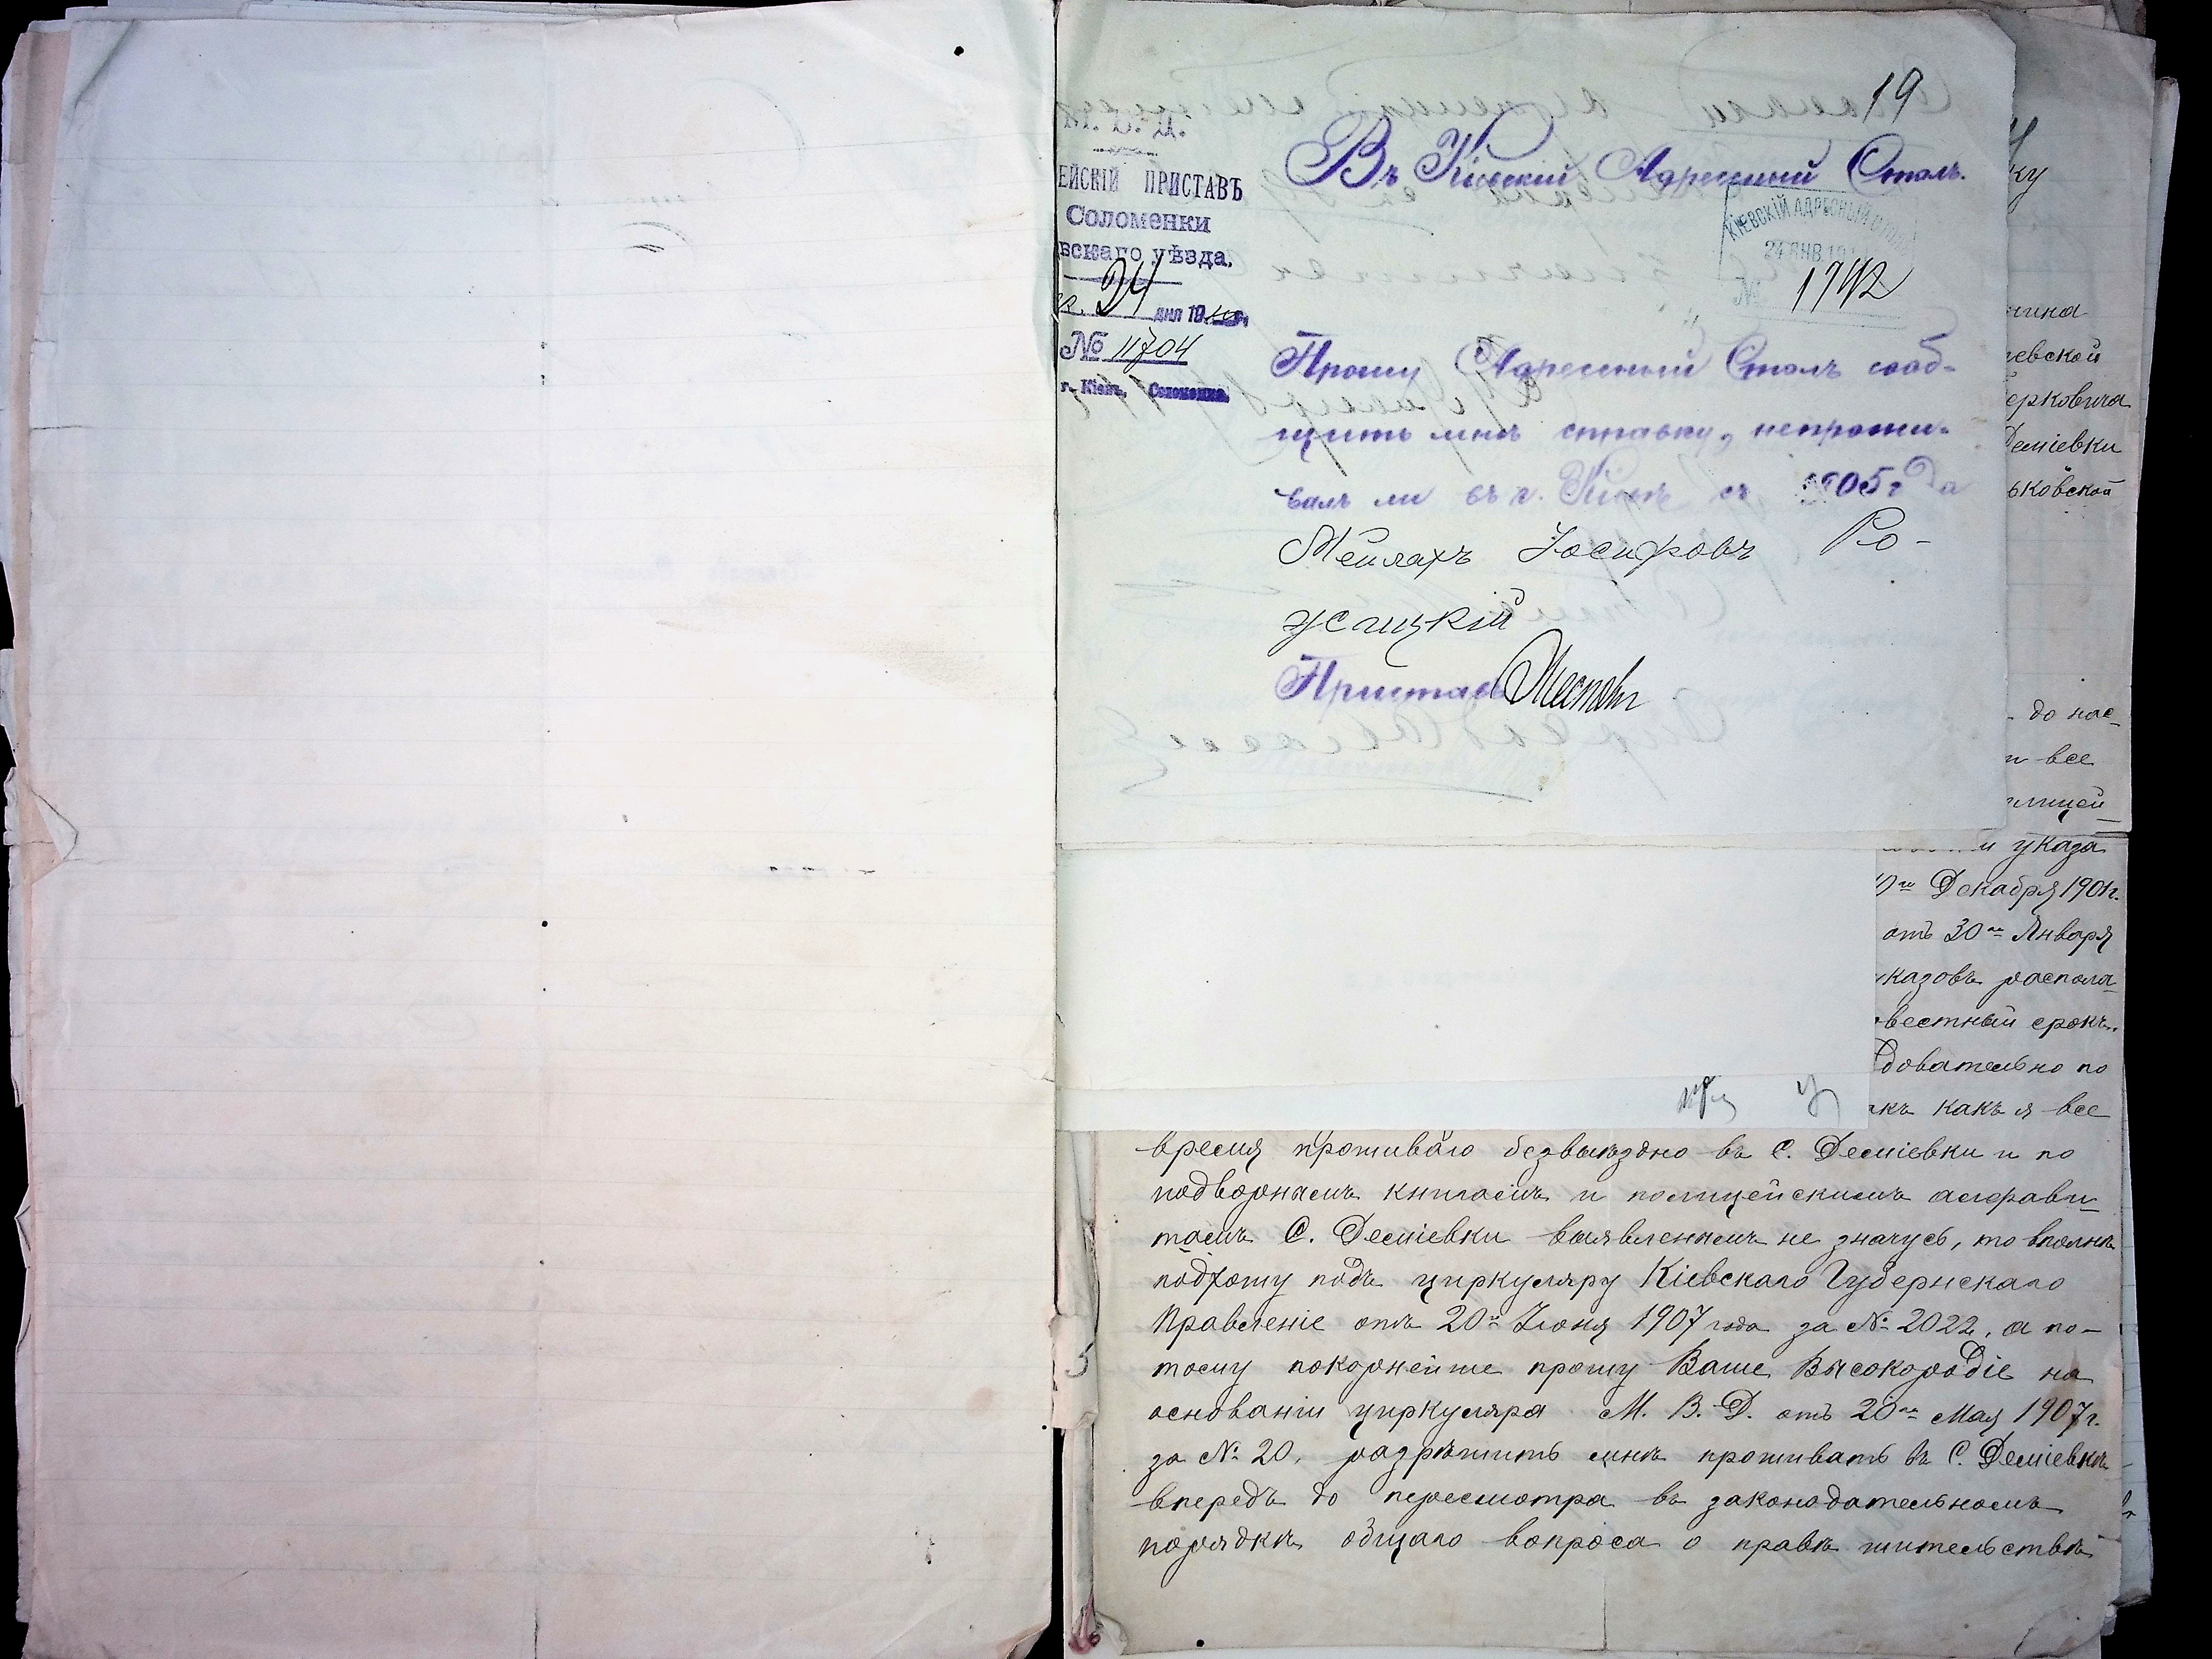 19
М. В. Д.
ЕЙСКІЙ ПРИСТАВЪ
Соломенки
вскаго уѣзда.
24 дня 19
№ 11704
г. Кіевъ, Соломенка.
Въ Кіевскій Адресный Столъ.
КІЕВСКІЙ АДРЕСНЫЙ СТОЛЪ
24 ЯНВ. 19
№ 1742
Прошу Адресный Столъ сооб-
щить мнѣ справку, непрожи-
валъ ли въ г. Кіевѣ съ 1905 г
Мейлахъ Іосифовъ Ро-
жицкій
Приставъ
ку
чина
ревской
ерковича
Деміевки
ьковской
до нас-
и все
лицей
и указа
Декабря 1901г.
отъ 30го Января
казовъ распола
вестный срокъ.
довательно по
акъ какъ я все
время проживаю безвыѣздно въ С. Деміевки и по
подворнымъ книгамъ и полицейскимъ алфави-
тамъ С. Деміевки выявленнымъ не значусь, то вполнѣ
подхожу подъ циркуляру Кіевскаго Губернскаго
Правленіе отъ 20го Іюня 1907 года за № 2022, а по-
тому покорнейше прошу Ваше Высокородіе на
основаніи циркуляра М. В. Д. отъ 20го Мая 1907 г.
за № 20, разрѣшить мнѣ проживать въ С. Деміевкѣ
впередъ до пересмотра въ законодательномъ
порядкѣ общаго вопроса о правѣ жительствѣ